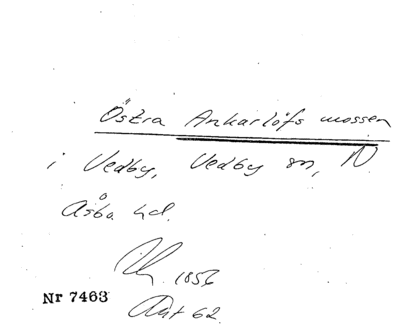 Östra Ankarlöfs mossen
i Vedby, Vedby sn, N
Åsbo hd.
1856
Nr 7463
Akt 62